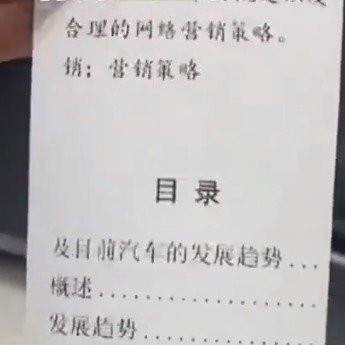 合理的网络营销策略。
销；营销策略
目 录
及目前汽车的发展趋势...
概述......................
发展趋势..................